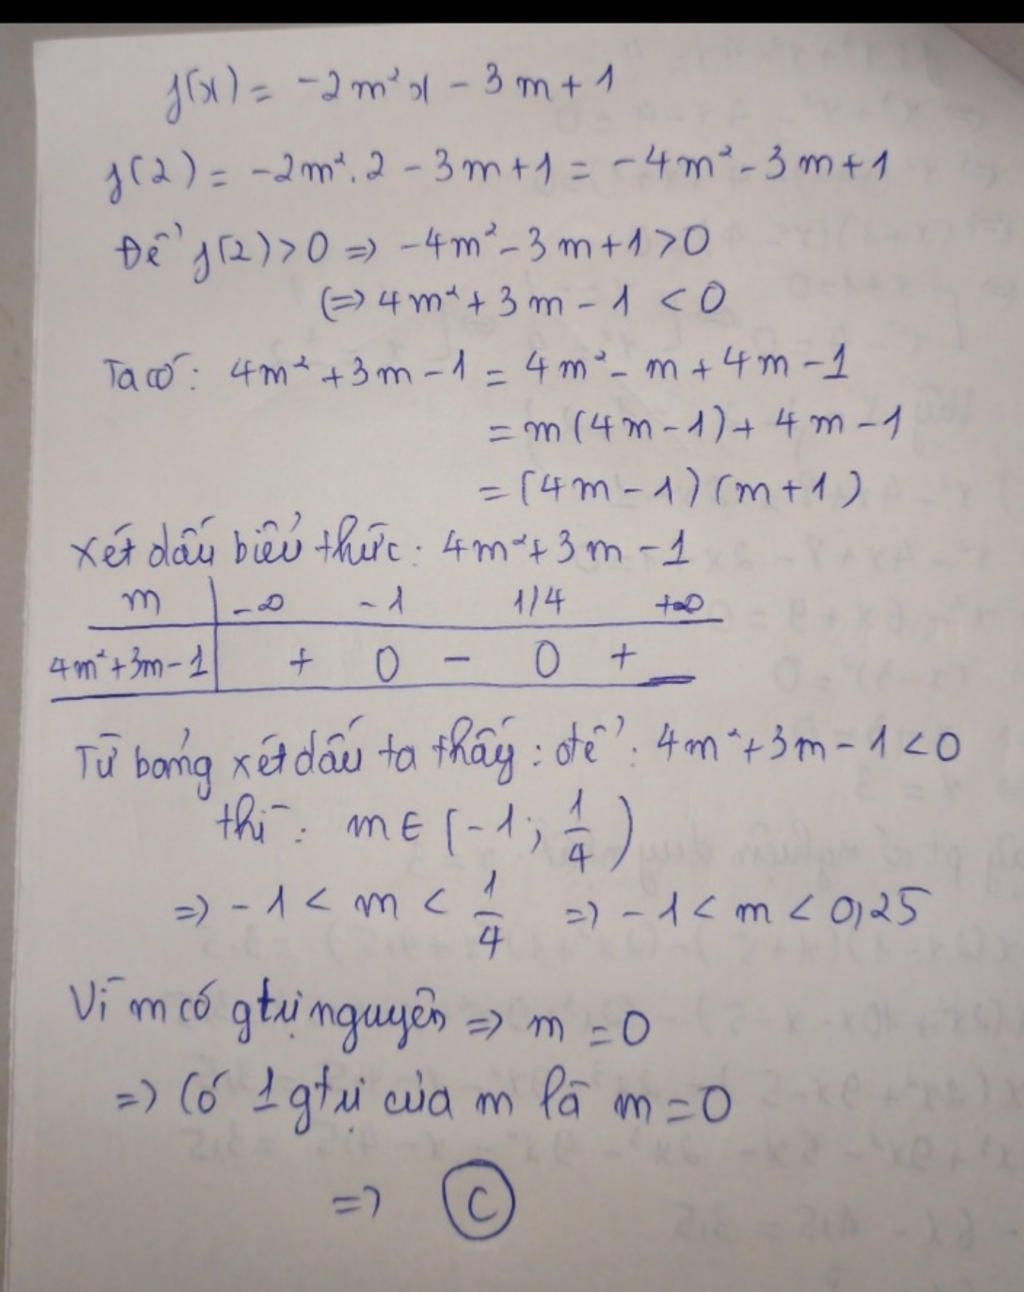 f(x) = -2m²x - 3m + 1
f(2) = -2m².2 - 3m + 1 = -4m² - 3m + 1
Để f(2) > 0 => -4m² - 3m + 1 > 0
(=> 4m² + 3m - 1 < 0
Ta có: 4m² + 3m - 1 = 4m² - m + 4m - 1
= m(4m - 1) + 4m - 1
= (4m - 1)(m + 1)
Xét dấu biểu thức: 4m² + 3m - 1
m | -∞ -1 1/4 +∞
4m² + 3m - 1 | + 0 - 0 +
Từ bảng xét dấu ta thấy: để: 4m² + 3m - 1 < 0
thì: m ∈ (-1; 1/4)
=> -1 < m < 1/4 => -1 < m < 0,25
Vì m có gtrị nguyên => m = 0
=> Có 1 gtrị của m là m = 0
=> C